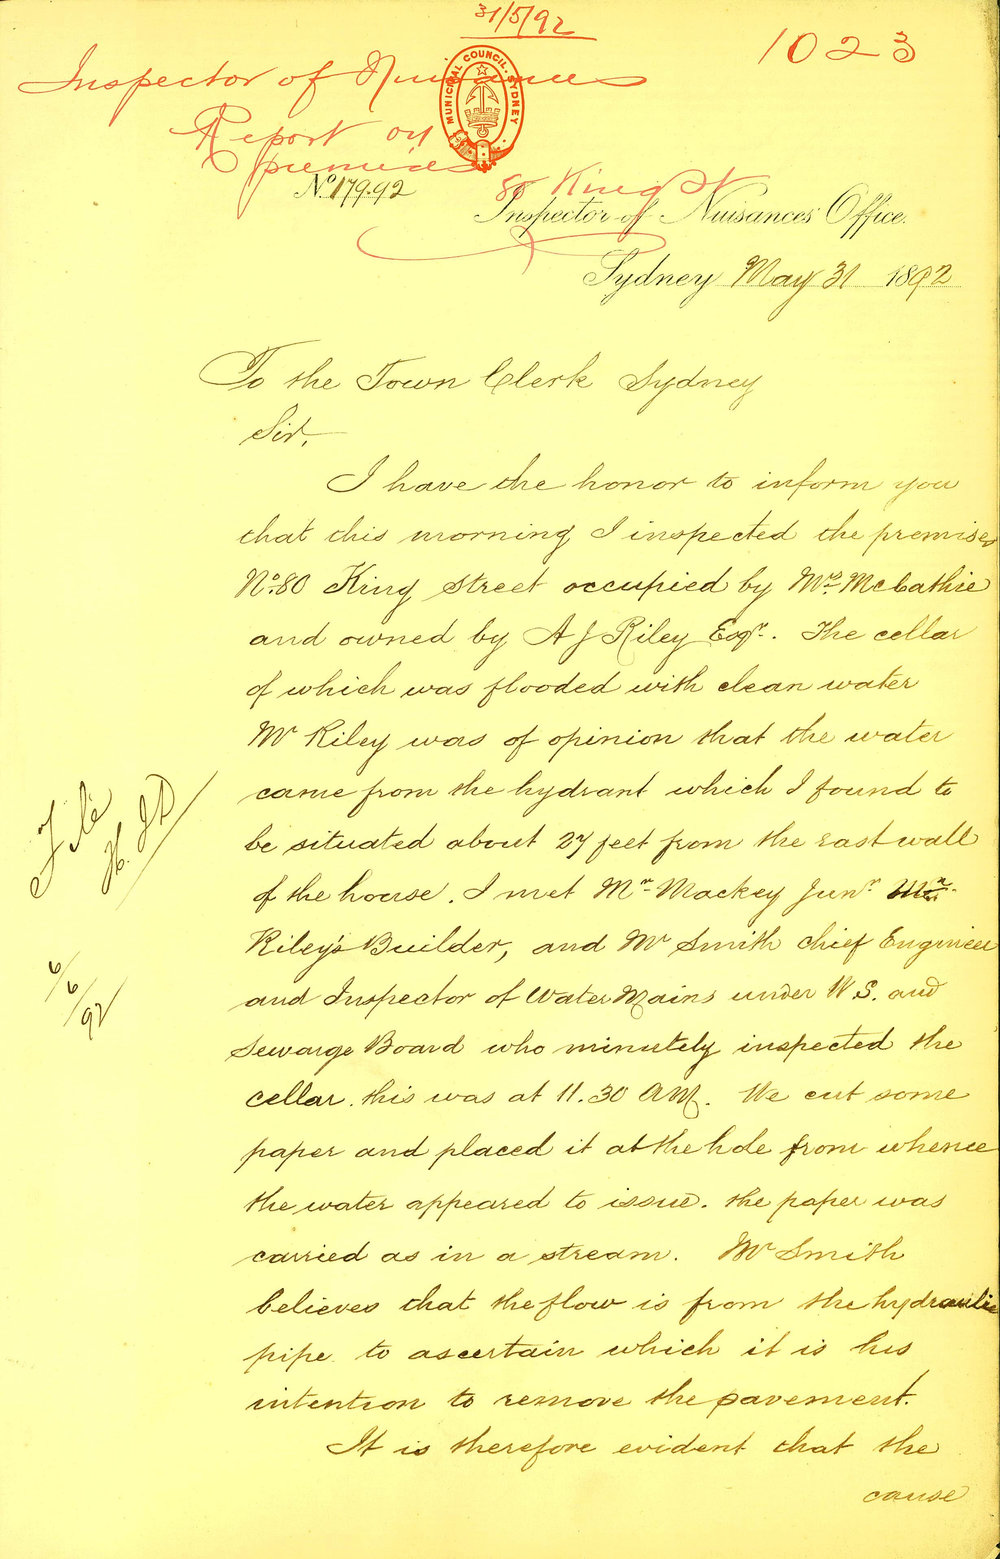 31/5/92
1023
Inspector of Nuisances
Report on
premises
80 King St
MUNICIPAL COUNCIL. SYDNEY
No. 179.92
Inspector of Nuisances Office.
Sydney May 31 1892
To the Town Clerk Sydney
Sir,
I have the honor to inform you
that this morning I inspected the premises
No. 80 King Street occupied by Mrs. McCathie
and owned by A J Riley Esqr. The cellar
of which was flooded with clean water
Mr Riley was of opinion that the water
came from the hydrant which I found to
be situated about 27 feet from the east wall
of the house. I met Mr. Mackey Junr. Mr.
Riley's Builder, and Mr Smith chief Engineer
and Inspector of Water Mains under W.S. and
Sewarge Board who minutely inspected the
cellar. this was at 11.30 AM. We cut some
paper and placed it at the hole from whence
the water appeared to issue. the paper was
carried as in a stream. Mr Smith
believes that the flow is from the hydraulic
pipe to ascertain which it is his
intention to remove the pavement.
It is therefore evident that the
cause
File
6/6/92